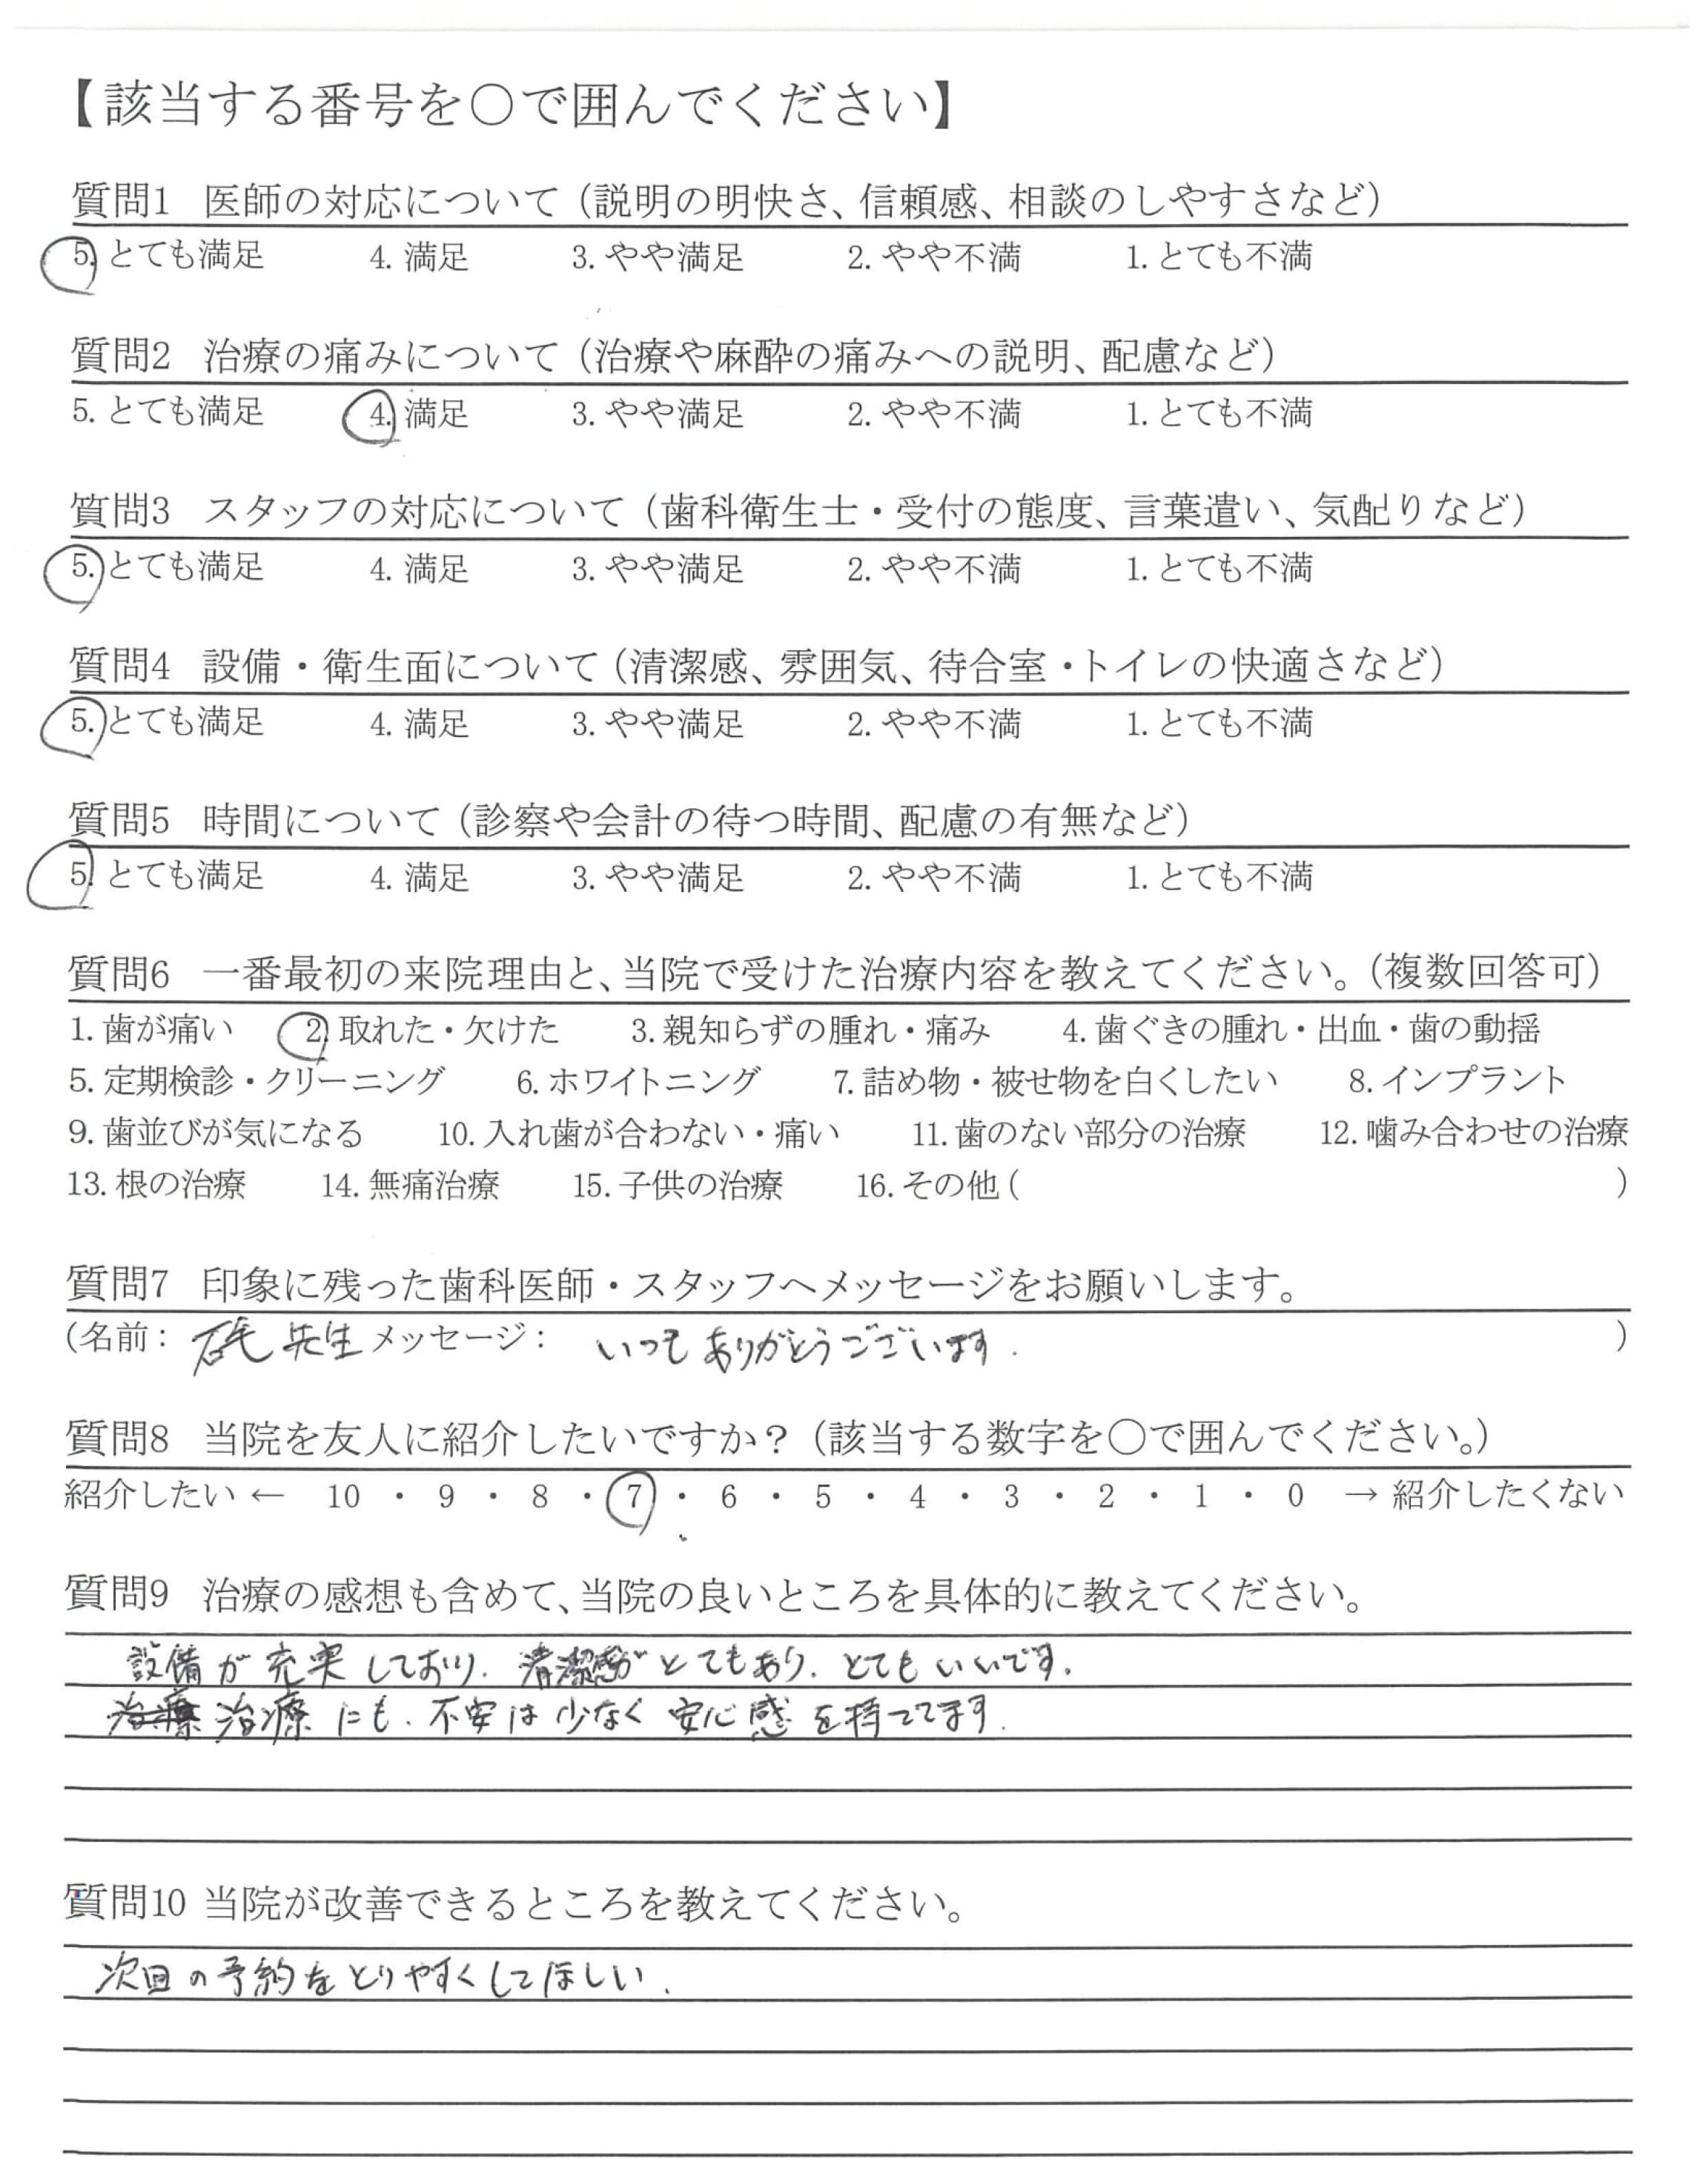 【該当する番号を○で囲んでください】
質問1 医師の対応について（説明の明快さ、信頼感、相談のしやすさなど）
5. とても満足 4. 満足 3. やや満足 2. やや不満 1. とても不満
質問2 治療の痛みについて（治療や麻酔の痛みへの説明、配慮など）
5. とても満足 4. 満足 3. やや満足 2. やや不満 1. とても不満
質問3 スタッフの対応について（歯科衛生士・受付の態度、言葉遣い、気配りなど）
5. とても満足 4. 満足 3. やや満足 2. やや不満 1. とても不満
質問4 設備・衛生面について（清潔感、雰囲気、待合室・トイレの快適さなど）
5. とても満足 4. 満足 3. やや満足 2. やや不満 1. とても不満
質問5 時間について（診察や会計の待つ時間、配慮の有無など）
5. とても満足 4. 満足 3. やや満足 2. やや不満 1. とても不満
質問6 一番最初の来院理由と、当院で受けた治療内容を教えてください。（複数回答可）
1. 歯が痛い 2. 取れた・欠けた 3. 親知らずの腫れ・痛み 4. 歯ぐきの腫れ・出血・歯の動揺
5. 定期検診・クリーニング 6. ホワイトニング 7. 詰め物・被せ物を白くしたい 8. インプラント
9. 歯並びが気になる 10. 入れ歯が合わない・痛い 11. 歯のない部分の治療 12. 噛み合わせの治療
13. 根の治療 14. 無痛治療 15. 子供の治療 16. その他（ ）
質問7 印象に残った歯科医師・スタッフへメッセージをお願いします。
（名前： 先生 メッセージ： いつもありがとうございます. ）
質問8 当院を友人に紹介したいですか？（該当する数字を○で囲んでください。）
紹介したい ← 10 ・ 9 ・ 8 ・ 7 ・ 6 ・ 5 ・ 4 ・ 3 ・ 2 ・ 1 ・ 0 → 紹介したくない
質問9 治療の感想も含めて、当院の良いところを具体的に教えてください。
設備が充実しており、清潔感がとてもあり、とてもいいです.
治療にも、不安は少なく安心感を持ててます.
質問10 当院が改善できるところを教えてください。
次回の予約をとりやすくしてほしい.